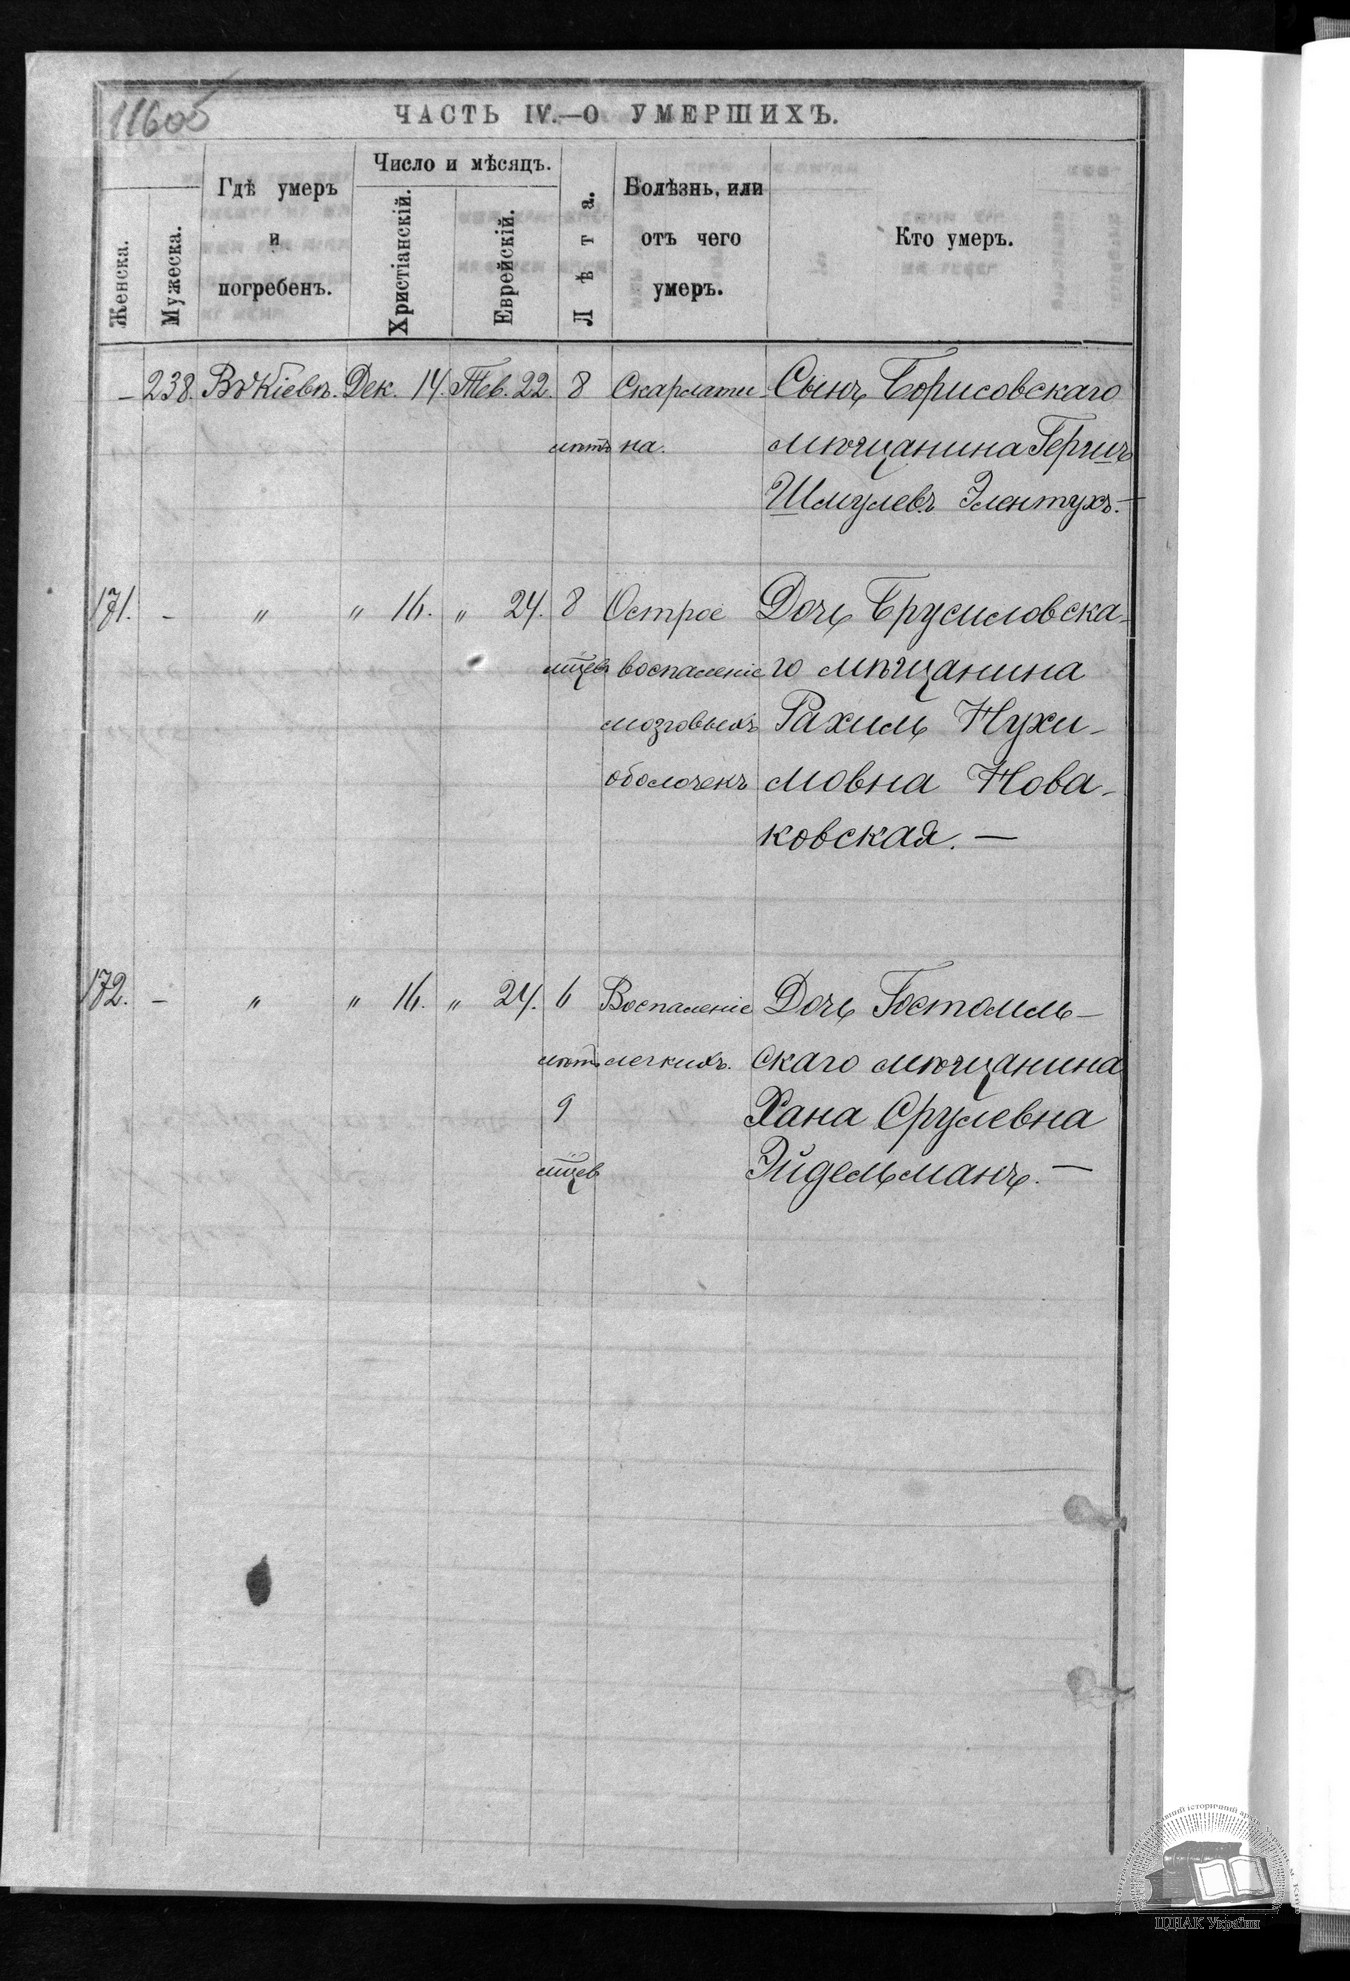 116об
ЧАСТЬ IV.—О УМЕРШИХЪ.
Женска.
Мужеска.
Гдѣ умеръ
и
погребенъ.
Число и мѣсяцъ.
Христіанскій.
Еврейскій.
Лѣта.
Болѣзнь, или
отъ чего
умеръ.
Кто умеръ.
— 238. Въ Кіевѣ. Дек. 14. Тев. 22. 8 Скарлати- Сынъ Борисовскаго
лѣтъ на. мѣщанина Гершъ
Шмулевъ Элентухъ.—
171. — „ „ 16. „ 24. 8 Острое Дочь Брусиловска-
мѣцев воспаленіе го мѣщанина
мозговыхъ Рахиль Нухи-
оболочекъ мовна Нова-
ковская. —
172. — „ „ 16. „ 24. 6 Воспаленіе Дочь Гостомль-
лѣтъ легкихъ. скаго мѣщанина
9 Хана Срулевна
мѣцев Эйдельманъ. —
ЦДІАК України